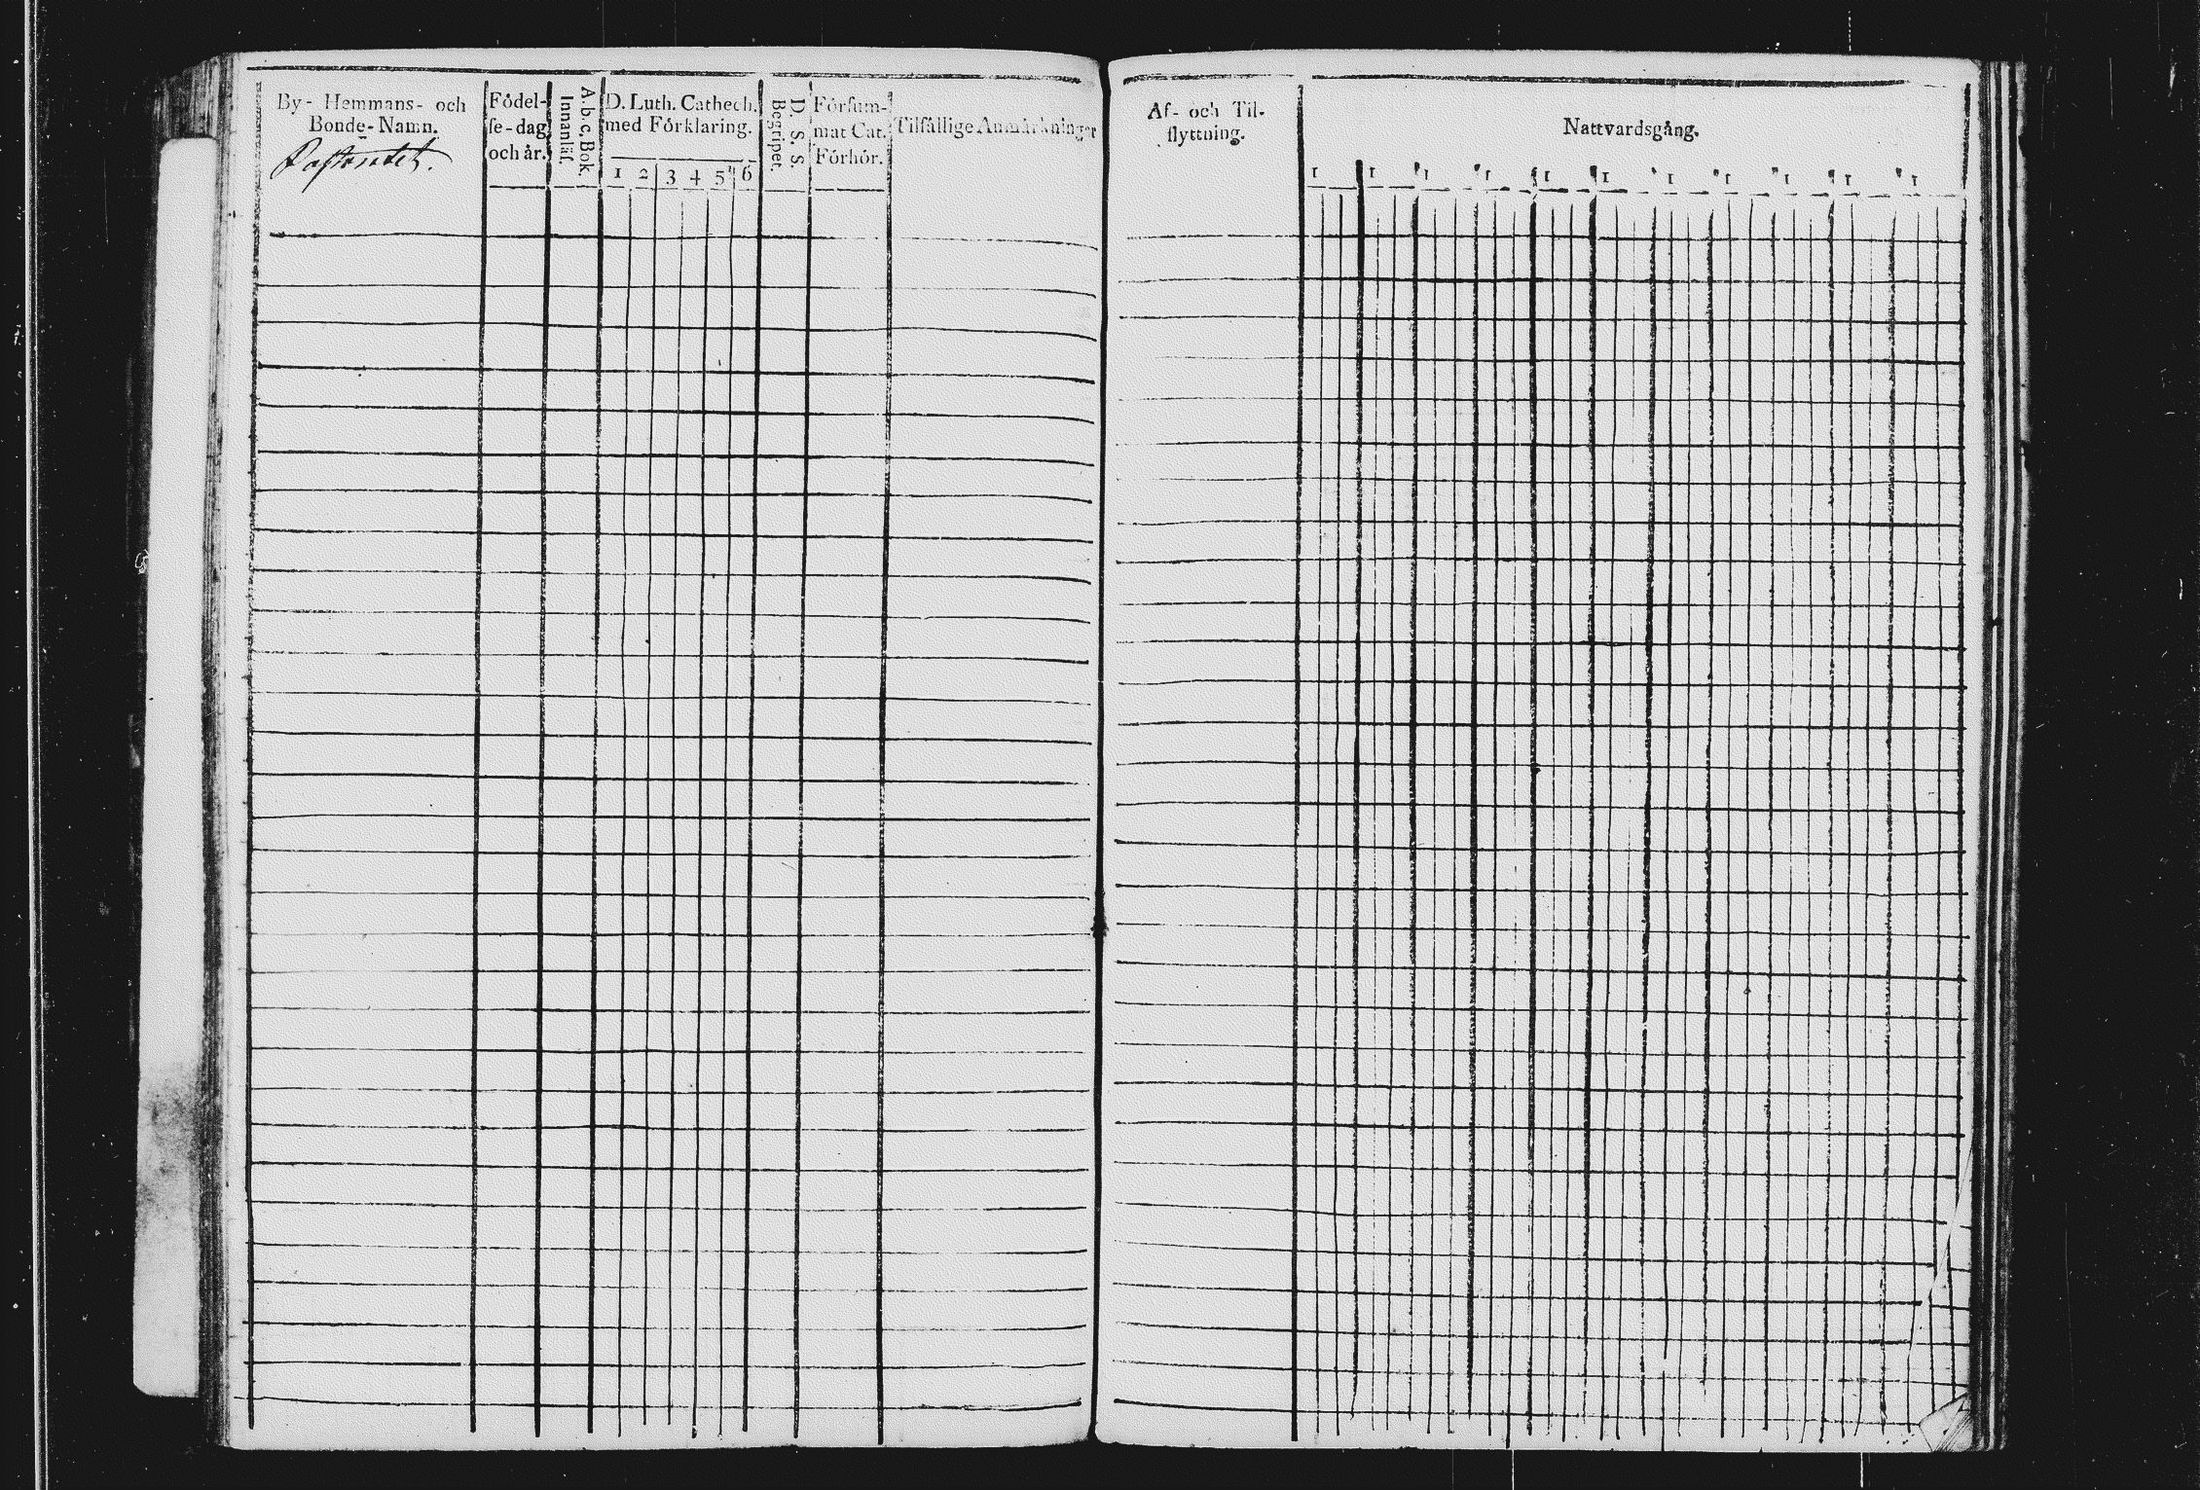 By- Hemmans- och
Bonde-Namn.
Födel-
se-dag
och år.
A.b.c.Bok.
Innanläs.
D. Luth. Cathech.
med Förklaring.
1 2 3 4 5 6
D. S. S.
Begripet.
Försum-
mat Cat.
Förhör.
Tilfällige Anmärkninger
Af- och Til-
flyttning.
Nattvardsgång.
1 1 1 1 1 1 1 1 1 1 1